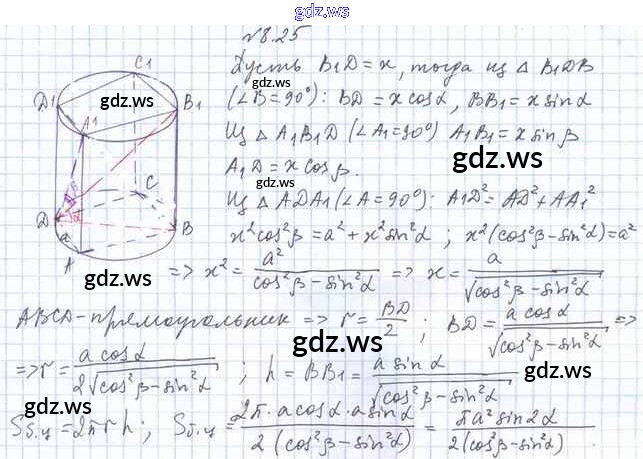 gdz.ws
№8.25
Пусть B1D = x, тогда из △ B1DB
(∠B=90°): BD = x cosα, BB1 = x sinα
Из △ A1B1D (∠A1=90°) A1B1 = x sinβ
A1D = x cosβ.
Из △ ADA1 (∠A=90°): A1D² = AD² + AA1²
x²cos²β = a² + x²sin²α ; x²(cos²β - sin²α) = a²
=> x² = a²/(cos²β - sin²α) => x = a/√(cos²β - sin²α)
ABCD - прямоугольник => r = BD/2 ; BD = a cosα/√(cos²β - sin²α) =>
=> r = a cosα/(2√(cos²β - sin²α)) ; h = BB1 = a sinα/√(cos²β - sin²α)
Sб.ц = 2πrh ; Sб.ц = 2π·a cosα·a sinα/(2(cos²β - sin²α)) = πa² sin2α/(2(cos²β - sin²α))
C1
D1
A1
B1
β
α
D
C
B
a
A
gdz.ws
gdz.ws
gdz.ws
gdz.ws
gdz.ws
gdz.ws
gdz.ws
gdz.ws
gdz.ws
gdz.ws
gdz.ws